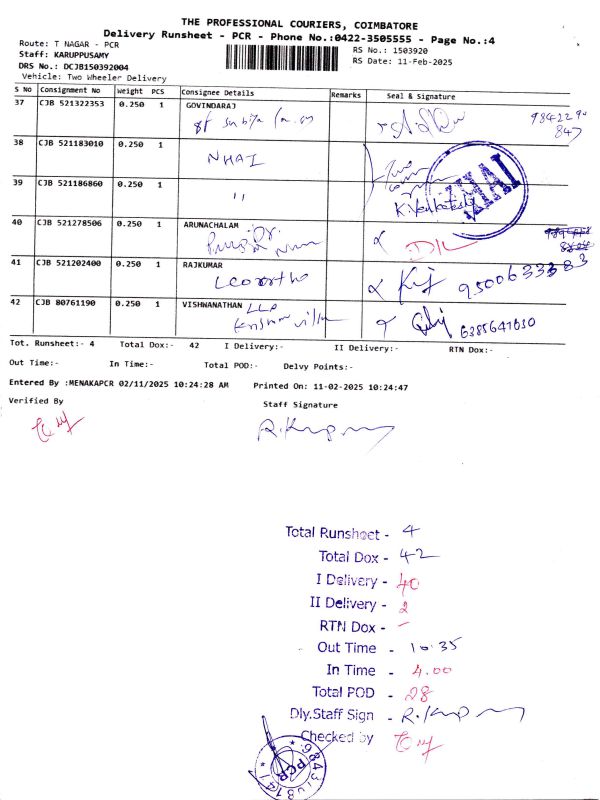 THE PROFESSIONAL COURIERS, COIMBATORE
Delivery Runsheet - PCR - Phone No.:0422-3505555 - Page No.:4
Route: T NAGAR - PCR
RS No.: 1503920
Staff: KARUPPUSAMY
RS Date: 11-Feb-2025
DRS No.: DCJB150392004
Vehicle: Two Wheeler Delivery
S No Consignment No Weight PCS Consignee Details Remarks Seal & Signature
37 CJB 521322353 0.250 1 GOVINDARAJ
984229
847
38 CJB 521183010 0.250 1
NHAI
NHAI
39 CJB 521186860 0.250 1 "
K. Venkatesh
40 CJB 521278506 0.250 1 ARUNACHALAM
41 CJB 521202400 0.250 1 RAJKUMAR
Leo ortho 9500633383
42 CJB 80761190 0.250 1 VISHWANATHAN LLP
6385641030
Tot. Runsheet:- 4 Total Dox:- 42 I Delivery:- II Delivery:- RTN Dox:-
Out Time:- In Time:- Total POD:- Delvy Points:-
Entered By :MENAKAPCR 02/11/2025 10:24:28 AM Printed On: 11-02-2025 10:24:47
Verified By Staff Signature
Total Runsheet - 4
Total Dox - 42
I Delivery - 40
II Delivery - 2
RTN Dox - -
Out Time - 10.35
In Time - 4.00
Total POD - 28
Dly.Staff Sign -
Checked by
PCR